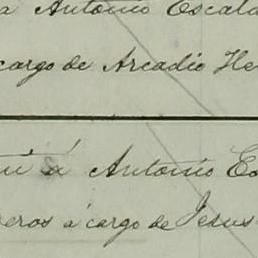 a Antonio Escala
cargo de Arcadio He
á Antonio Es
eros a cargo de Jesus